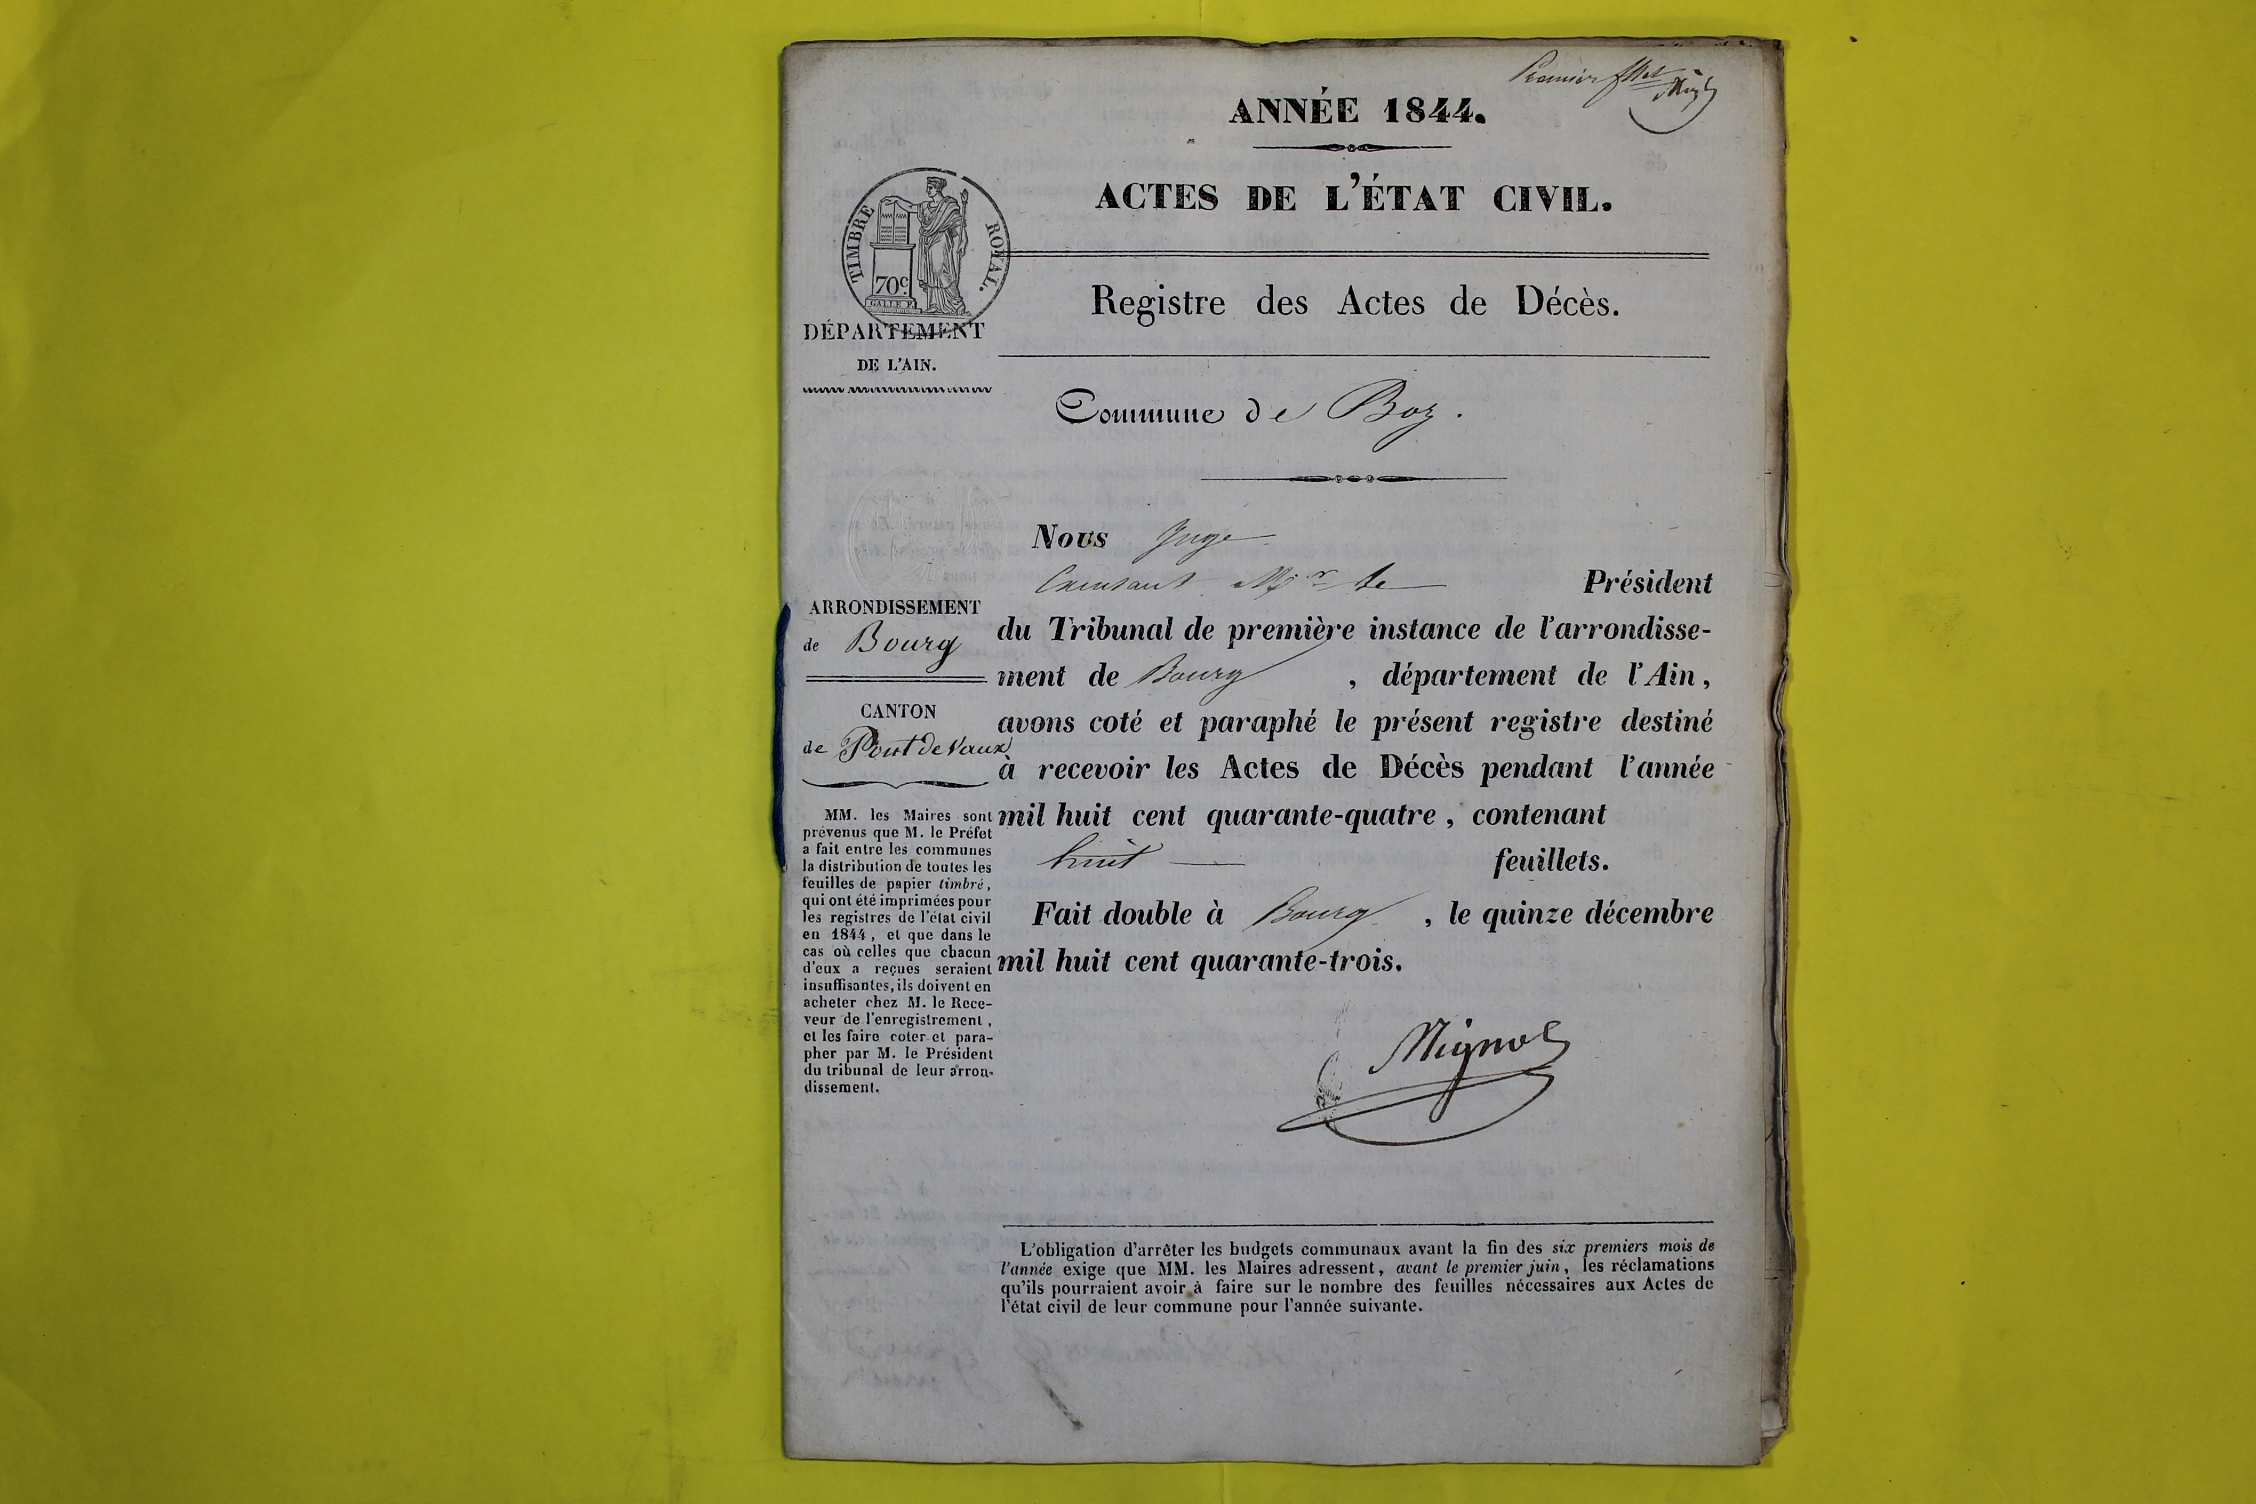 Premier fllet
ANNÉE 1844.
ACTES DE L'ÉTAT CIVIL.
TIMBRE ROYAL.
70c
GALLE F.
Registre des Actes de Décès.
DÉPARTEMENT
DE L'AIN.
Commune de Boz.
Nous Juge
Exerçant Mr le Président
du Tribunal de première instance de l'arrondisse-
ment de Bourg, département de l'Ain,
avons coté et paraphé le présent registre destiné
à recevoir les Actes de Décès pendant l'année
mil huit cent quarante-quatre, contenant
huit feuillets.
Fait double à Bourg, le quinze décembre
mil huit cent quarante-trois.
Mignot
ARRONDISSEMENT
de Bourg
CANTON
de Pont de Vaux
MM. les Maires sont
prévenus que M. le Préfet
a fait entre les communes
la distribution de toutes les
feuilles de papier timbré,
qui ont été imprimées pour
les registres de l'état civil
en 1844, et que dans le
cas où celles que chacun
d'eux a reçues seraient
insuffisantes, ils doivent en
acheter chez M. le Rece-
veur de l'enregistrement,
et les faire coter et para-
pher par M. le Président
du tribunal de leur arron-
dissement.
L'obligation d'arrêter les budgets communaux avant la fin des six premiers mois de
l'année exige que MM. les Maires adressent, avant le premier juin, les réclamations
qu'ils pourraient avoir à faire sur le nombre des feuilles nécessaires aux Actes de
l'état civil de leur commune pour l'année suivante.